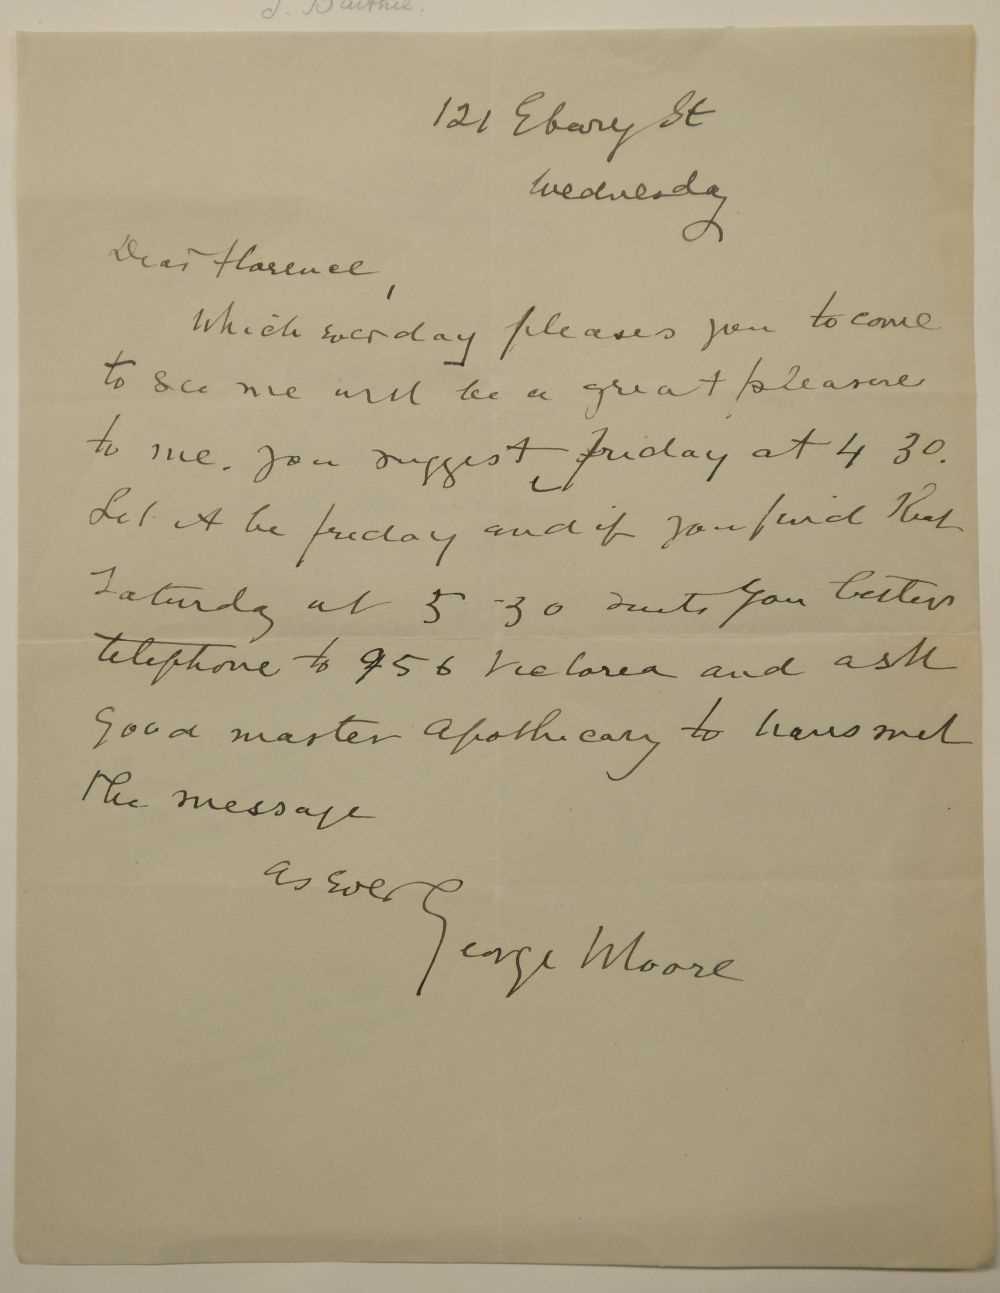 121 Ebury St
Wednesday
Dear Florence,
Which ever day pleases you to come
to see me will be a great pleasure
to me. You suggest, Friday at 4 30.
Let it be friday and if you find that
Saturday at 5-30 suits you better
telephone to 956 Victoria and ask
good master apothecary to transmit
the message
as ever
George Moore